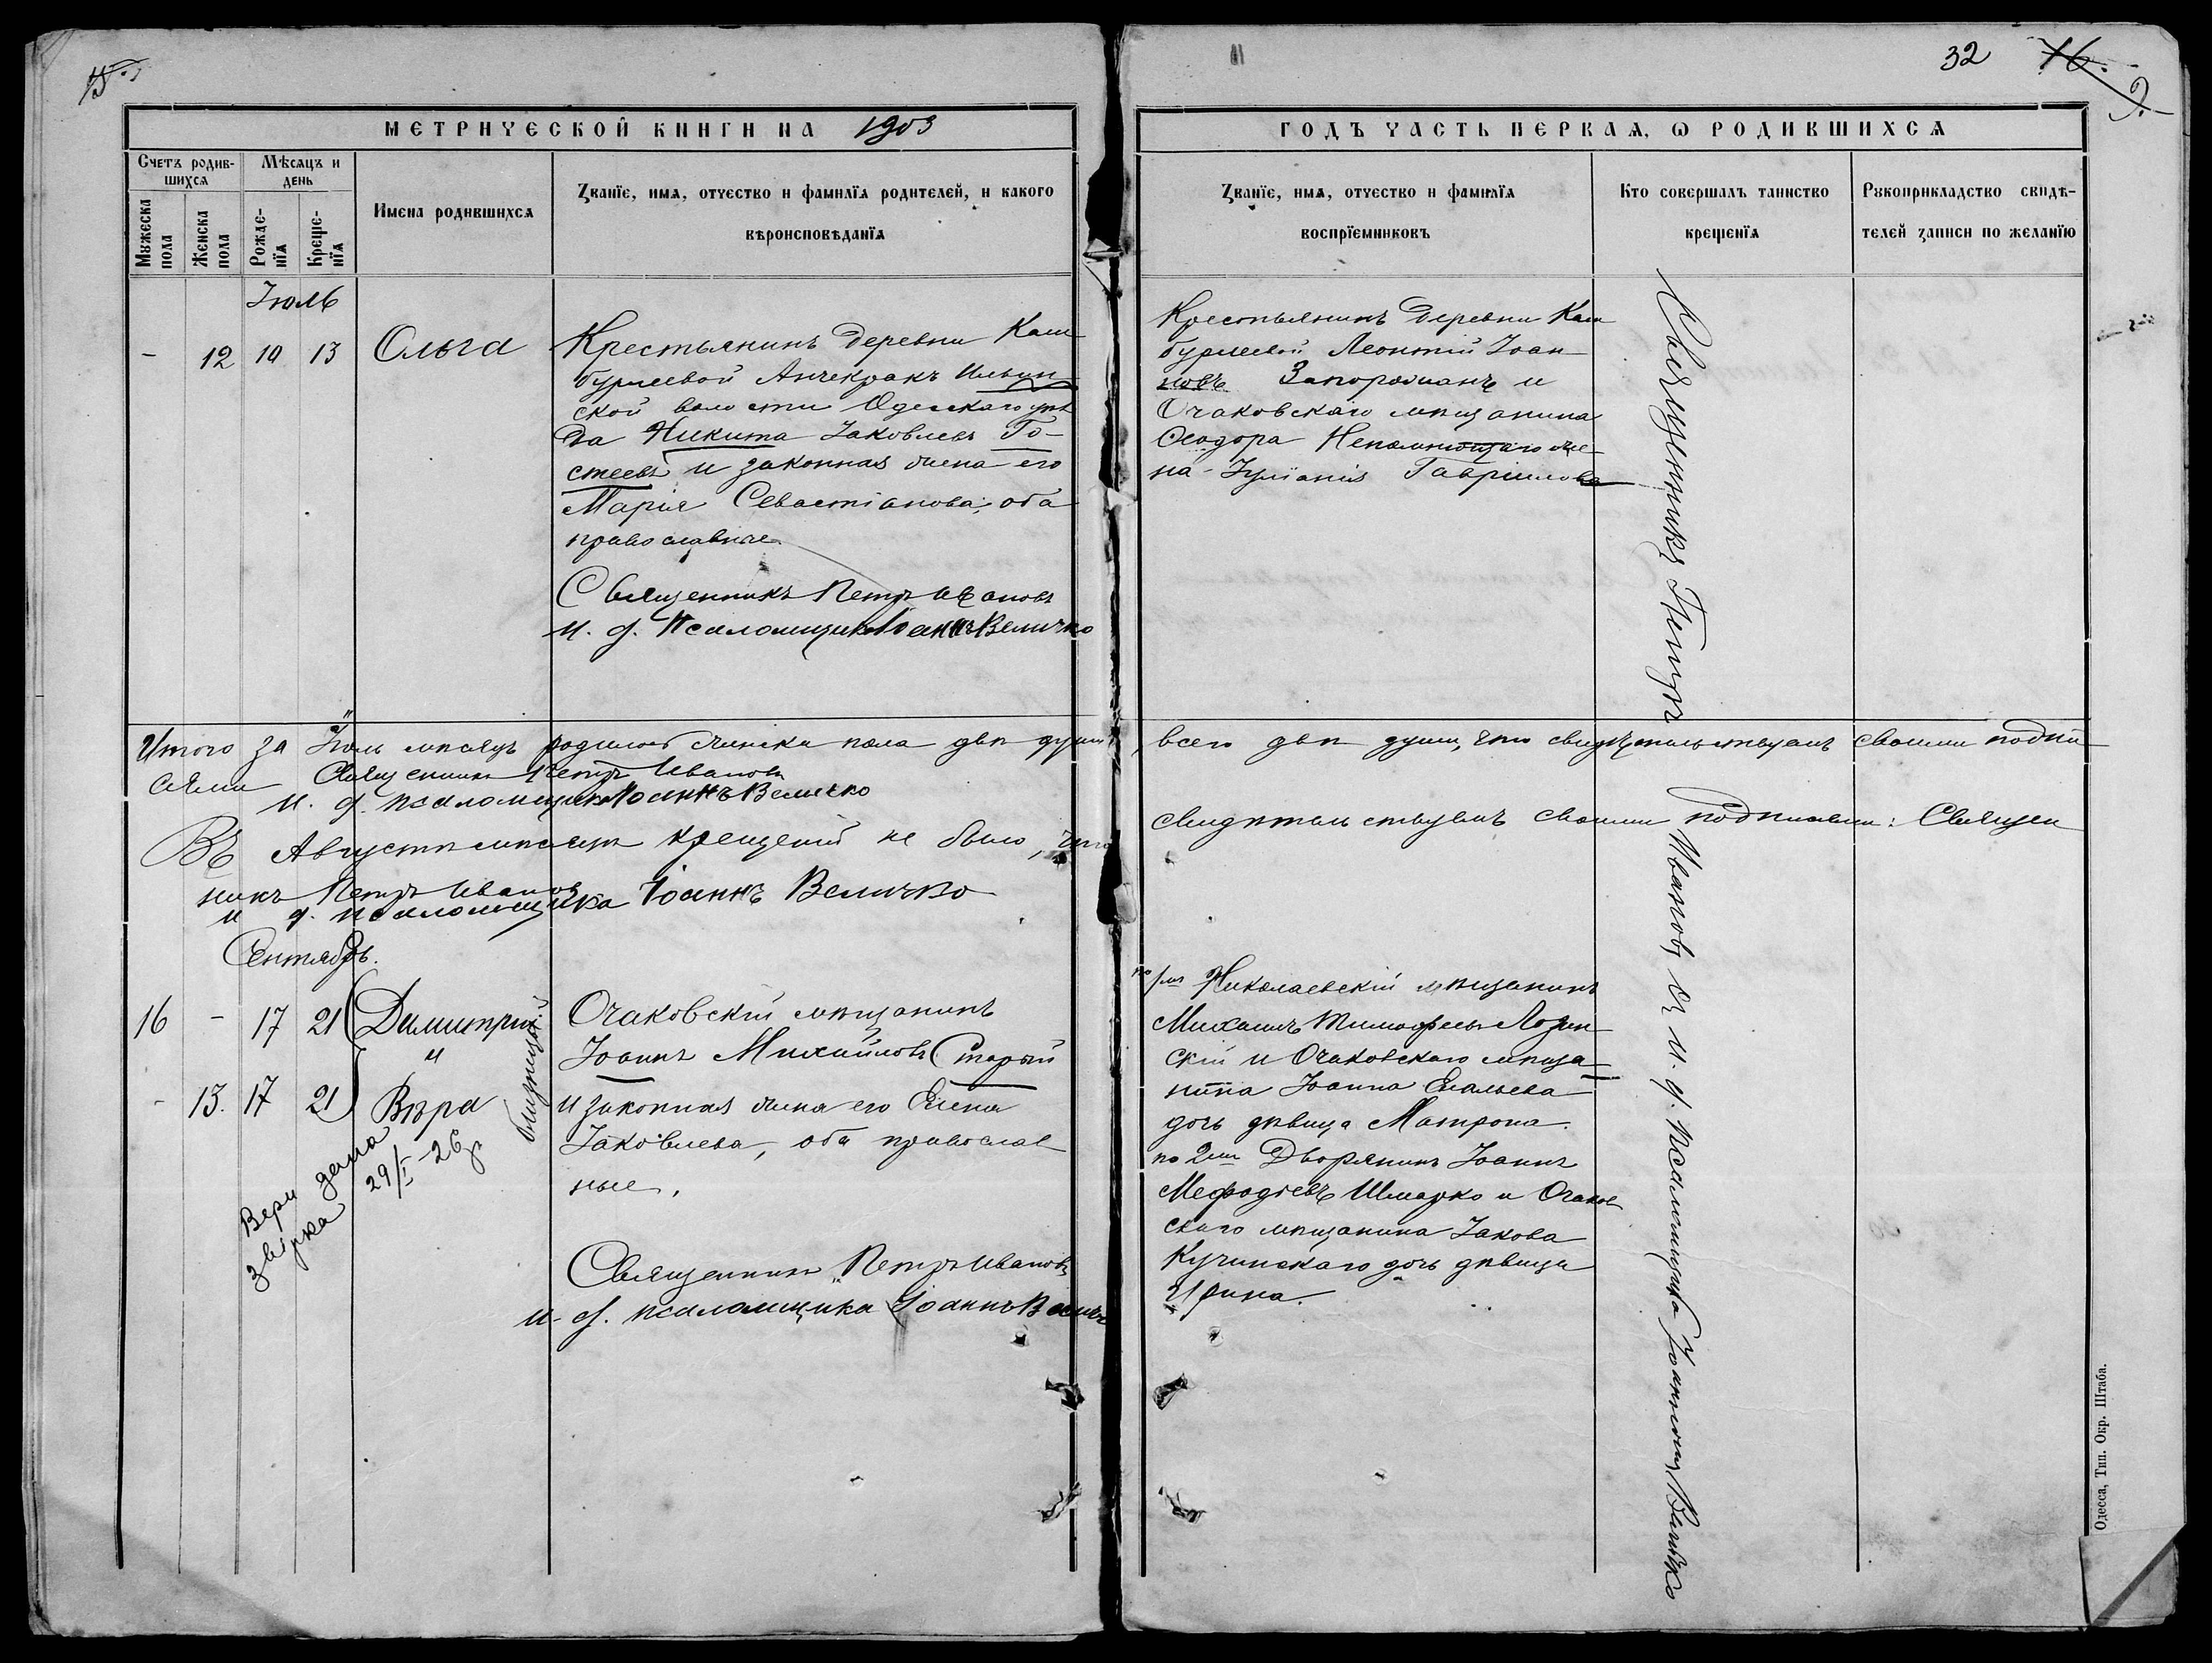 32 16.
МЕТРИЧЕСКОЙ КНИГИ НА 1903
ГОДЪ ЧАСТЬ ПЕРВАЯ, Ѡ РОДИВШИХСЯ
Счетъ родив-
шихся
Мѣсяцъ и
день
Мужеска
пола
Женска
пола
Рожде-
нїя
Креще-
нїя
Имена родившихся
Званїе, имя, отчество и фамилїя родителей, и какого
вѣроисповѣданїя
Званїе, имя, отчество и фамилїя
воспрїемниковъ
Кто совершалъ таинство
крещенїя
Рукоприкладство свидѣ-
телей записи по желанїю
Іюль
- 12 10 13 Ольга
Крестьянинъ деревни Каш
бурлеевой Анчекракъ Ильин
ской волости Одесскаго уѣз
да Никита Іаковлевъ Го-
стеевъ и законная жена его
Марія Севастіанова, оба
православные.
Священникъ Петръ Ивановъ
И. д. Псаломщика Іоаннъ Величко
Крестьянинъ деревни Каш
бурлеевой Леонтій Іоан
новъ Запорожанъ и
Очаковскаго мѣщанина
Ѳеодора Непомнющаго же-
на Іуліанія Гавріилова
Священникъ Петръ
Итого за Іюль мѣсяцъ родилось женска пола двѣ души, всего двѣ души, что свидѣтельствуемъ своими подпи
сями Священникъ Петръ Ивановъ
И. д. псаломщика Іоаннъ Величко
Въ Августѣ мѣсяцѣ крещеній не было, что свидѣтельствуемъ своими подписями: Священ
никъ Петръ Ивановъ
и д. псаломщика Іоаннъ Величко
Сентябрь.
16 - 17 21 Димитрій
и
- 13. 17 21 Вѣра
близнецы
Вери дана
звірка 29/I-26р
Очаковскій мѣщанинъ
Іоаннъ Михайловъ Старый
и законная жена его Елена
Іаковлева, оба православ
ные.
Священникъ Петръ Ивановъ
И. д. псаломщика Іоаннъ Велич
по 1му Николаевскій мѣщанинъ
Михаилъ Тимофеевъ Лозин
скій и Очаковскаго мѣща
нина Іоанна Емальева
дочь дѣвица Матрона.
по 2му Дворянинъ Іоаннъ
Мефодіевъ Шмарко и Очаков
скаго мѣщанина Іакова
Кучинскаго дочь дѣвица
Ирина.
Ивановъ съ и. д. псаломщика Іоанномъ Величко
Одесса, Тип. Окр. Штаба.